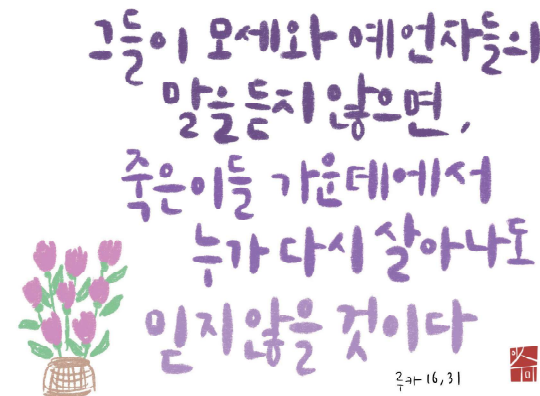 그들이 모세와 예언자들의
말을 듣지 않으면,
죽은이들 가운데에서
누가 다시 살아나도
믿지않을 것이다
루카 16,31